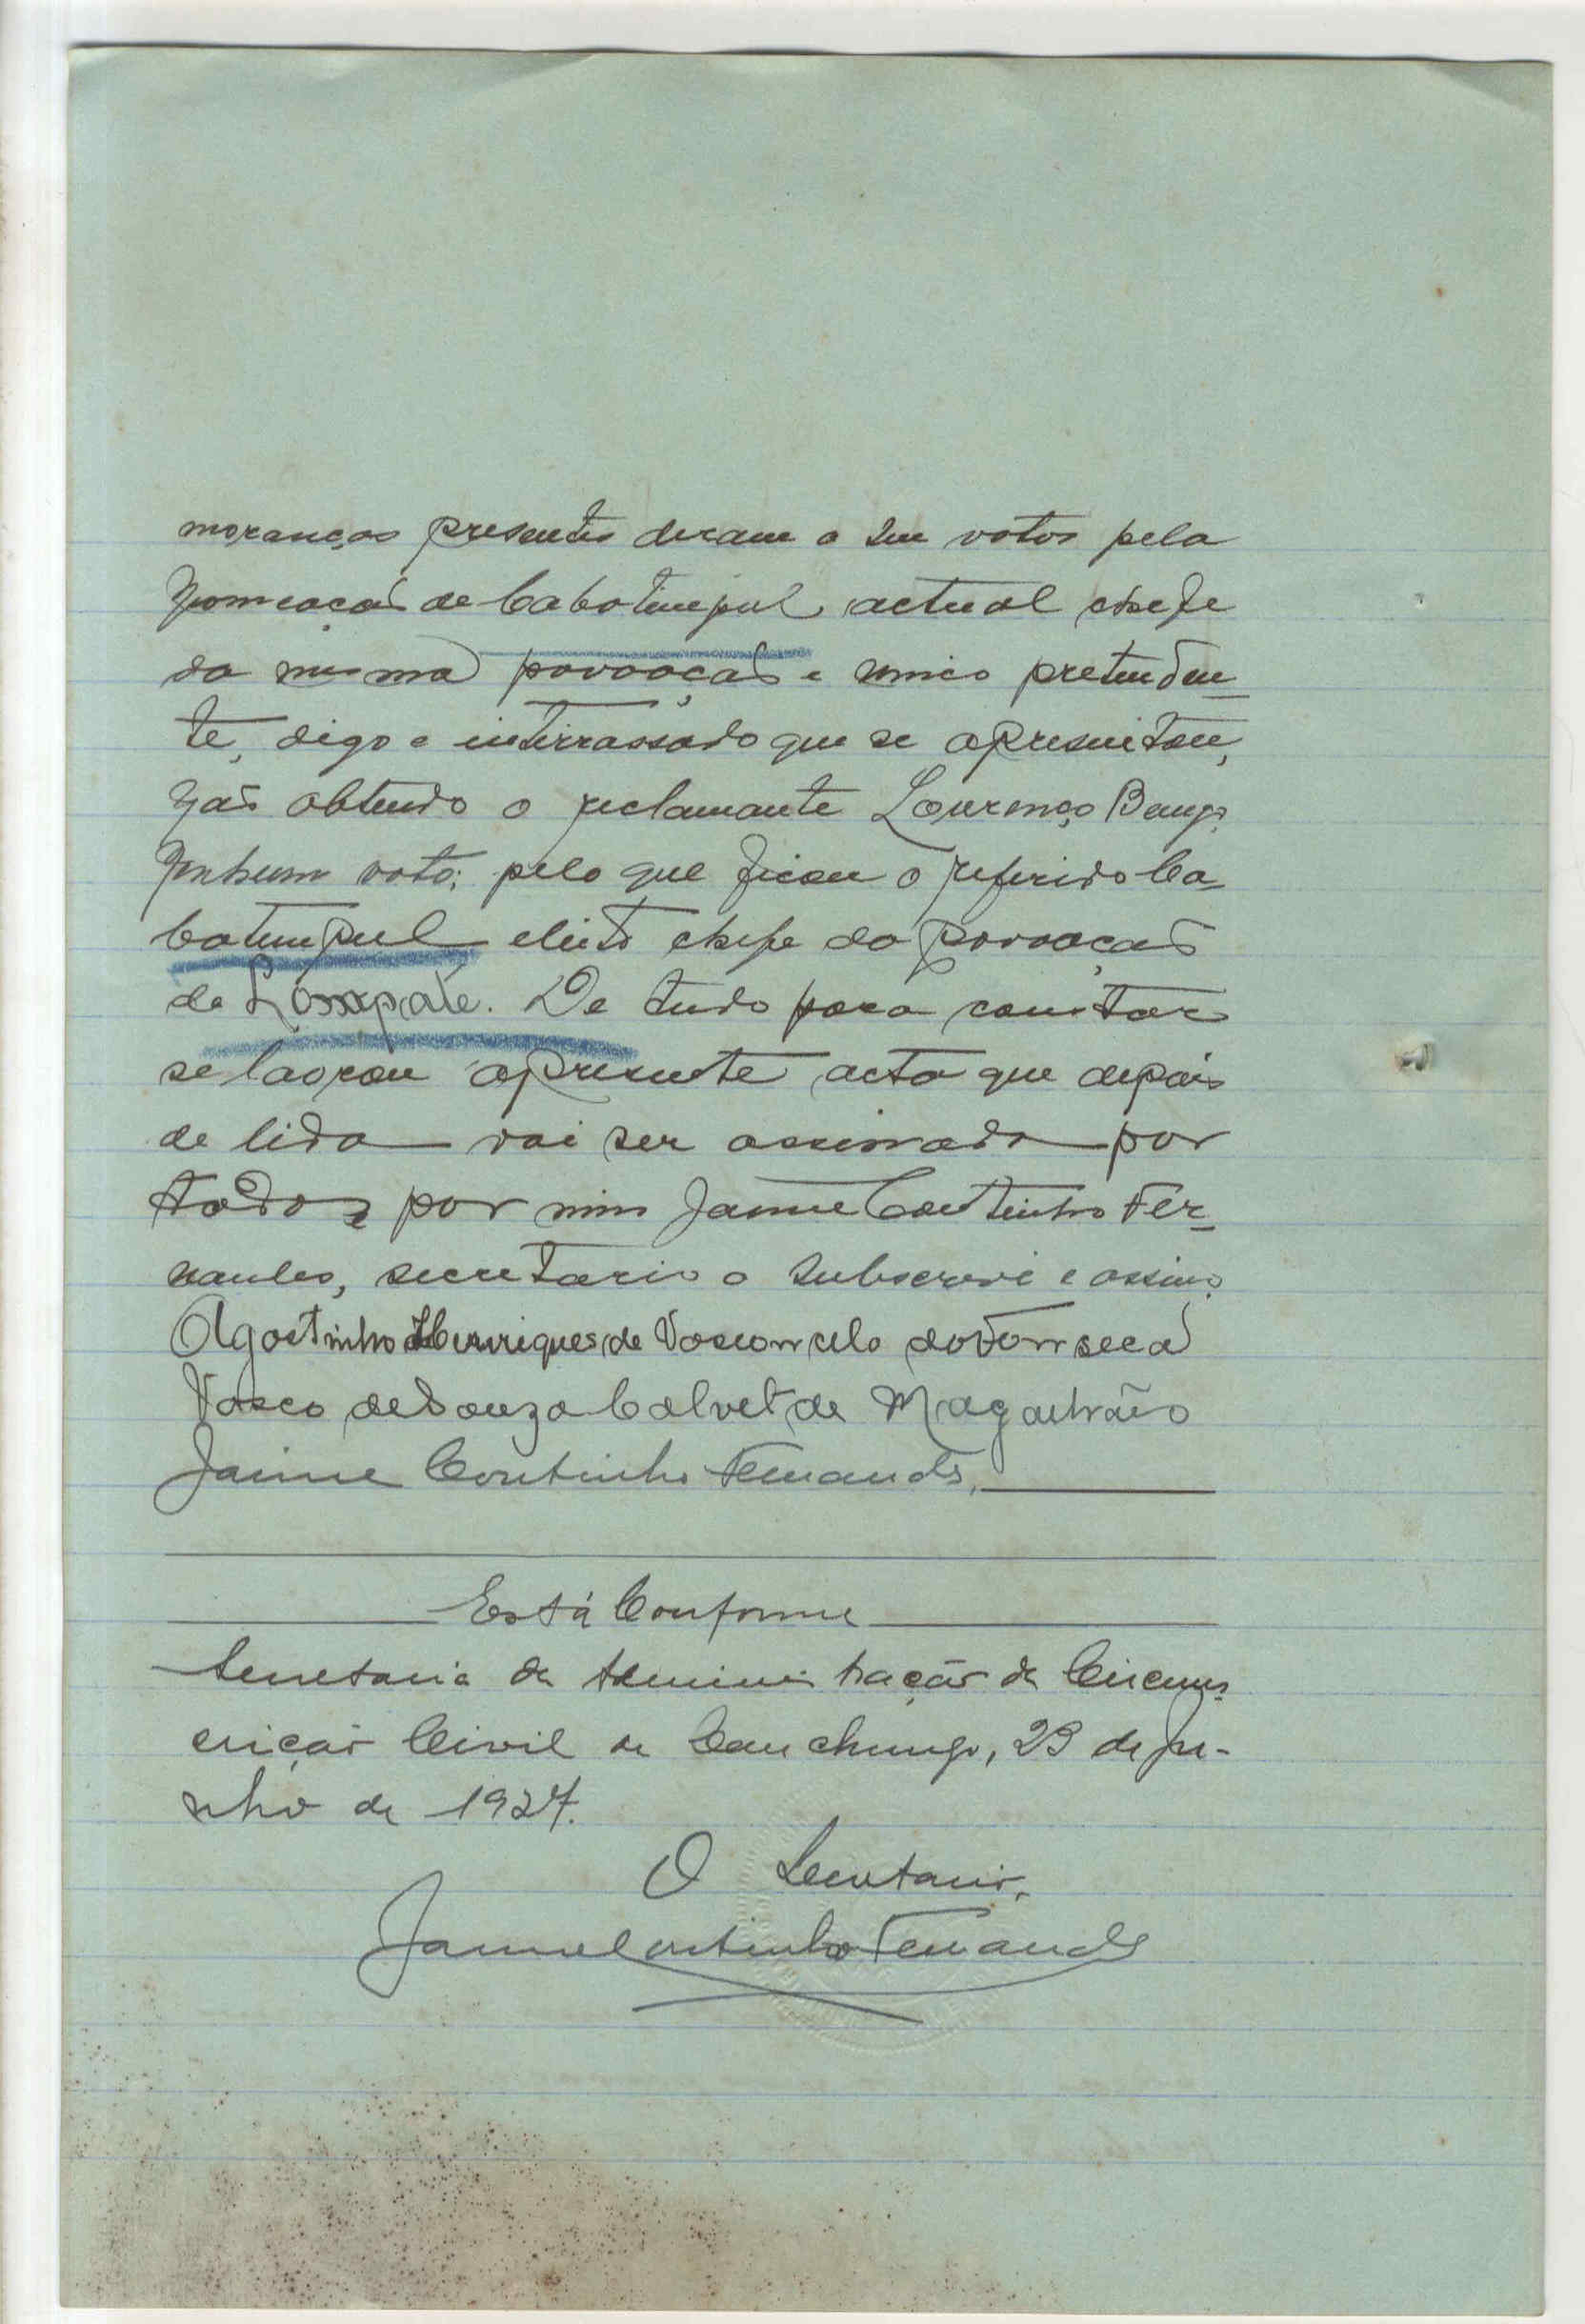 moranças presentes deram o seu votos pela
nomeação de Cabatimpul actual chefe
da mesma povoação e unico pretenden-
te, digo e interrassado que se apresentou,
não obtendo o reclamante Lourenço
nenhum voto; pelo que ficou o referido Ca-
batimpul eleito chefe da povoação
de. De tudo para constar
se lavrou apresente acta que depois
de lida vai ser assinada por
todos e por mim Jaime Coutinho Fer-
nandes, secretario o subscrevi e assino.
Agostinho Henriques de Vasconcelo da Fonseca
Vasco de Souza Calvet de Magalhães
Jaime Coutinho Fernandes,
Está Conforme
Secretaria da Administração da Circuns-
crição Civil de Canchungo, 23 de Ju-
nho de 1927.
O Secretario,
Jaime Coutinho Fernandes